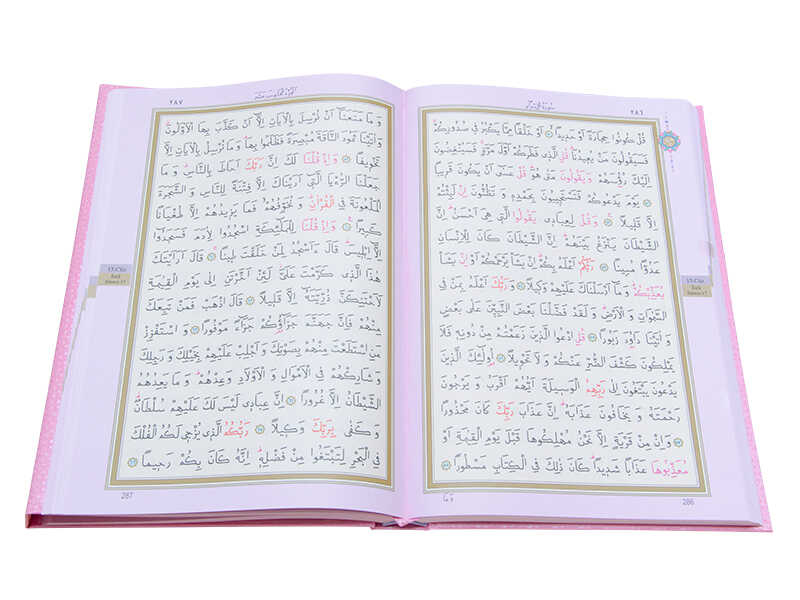 سُورَةُ الْاِسْرَاءِ ٢٨٦
قُلْ كُونُوا حِجَارَةً اَوْ حَدِيدًاۙ ﴿٥٠﴾ اَوْ خَلْقًا مِمَّا يَكْبُرُ فِي صُدُورِكُمْۚ
فَسَيَقُولُونَ مَنْ يُعِيدُنَاۜ قُلِ الَّذِي فَطَرَكُمْ اَوَّلَ مَرَّةٍۚ فَسَيُنْغِضُونَ
اِلَيْكَ رُؤُ۫سَهُمْ وَيَقُولُونَ مَتٰى هُوَۜ قُلْ عَسٰٓى اَنْ يَكُونَ قَرِيبًا
﴿٥١﴾ يَوْمَ يَدْعُوكُمْ فَتَسْتَجِيبُونَ بِحَمْدِهِ وَتَظُنُّونَ اِنْ لَبِثْتُمْ
اِلَّا قَلِيلًا۟ ﴿٥٢﴾ وَقُلْ لِعِبَادِي يَقُولُوا الَّتِي هِيَ اَحْسَنُۜ اِنَّ
الشَّيْطَانَ يَنْزَغُ بَيْنَهُمْۜ اِنَّ الشَّيْطَانَ كَانَ لِلْاِنْسَانِ
عَدُوًّا مُبِينًا ﴿٥٣﴾ رَبُّكُمْ اَعْلَمُ بِكُمْۜ اِنْ يَشَأْ يَرْحَمْكُمْ اَوْ اِنْ يَشَأْ
يُعَذِّبْكُمْۜ وَمَٓا اَرْسَلْنَاكَ عَلَيْهِمْ وَكِيلًا ﴿٥٤﴾ وَرَبُّكَ اَعْلَمُ بِمَنْ فِي
السَّمٰوَاتِ وَالْاَرْضِۜ وَلَقَدْ فَضَّلْنَا بَعْضَ النَّبِيّنَ عَلٰى بَعْضٍ
وَاٰتَيْنَا دَاوُ۫دَ زَبُورًا ﴿٥٥﴾ قُلِ ادْعُوا الَّذِينَ زَعَمْتُمْ مِنْ دُونِهِ فَلَا
يَمْلِكُونَ كَشْفَ الضُّرِّ عَنْكُمْ وَلَا تَحْوِيلًا ﴿٥٦﴾ اُو۬لٰٓئِكَ الَّذِينَ
يَدْعُونَ يَبْتَغُونَ اِلٰى رَبِّهِمُ الْوَسِيلَةَ اَيُّهُمْ اَقْرَبُ وَيَرْجُونَ
رَحْمَتَهُ وَيَخَافُونَ عَذَابَهُۜ اِنَّ عَذَابَ رَبِّكَ كَانَ مَحْذُورًا
﴿٥٧﴾ وَاِنْ مِنْ قَرْيَةٍ اِلَّا نَحْنُ مُهْلِكُوهَا قَبْلَ يَوْمِ الْقِيٰمَةِ اَوْ
مُعَذِّبُوهَا عَذَابًا شَدِيدًاۜ كَانَ ذٰلِكَ فِي الْكِتَابِ مَسْطُورًا ﴿٥٨﴾
وَمَا
286
15.Cüz
İsrâ
Sûresi-17
٢٨٧ اَلْجُزْءُ الْخَامِسَ عَشَرَ
وَمَا مَنَعَنَٓا اَنْ نُرْسِلَ بِالْاٰيَاتِ اِلَّٓا اَنْ كَذَّبَ بِهَا الْاَوَّلُونَۜ
وَاٰتَيْنَا ثَمُودَ النَّاقَةَ مُبْصِرَةً فَظَلَمُوا بِهَاۜ وَمَا نُرْسِلُ بِالْاٰيَاتِ اِلَّا
تَخْوِيفًا ﴿٥٩﴾ وَاِذْ قُلْنَا لَكَ اِنَّ رَبَّكَ اَحَاطَ بِالنَّاسِۜ وَمَا
جَعَلْنَا الرُّءْيَا الَّتِٓي اَرَيْنَاكَ اِلَّا فِتْنَةً لِلنَّاسِ وَالشَّجَرَةَ
الْمَلْعُونَةَ فِي الْقُرْاٰنِۜ وَنُخَوِّفُهُمْۙ فَمَا يَزِيدُهُمْ اِلَّا طُغْيَانًا
كَبِيرًا۟ ﴿٦٠﴾ وَاِذْ قُلْنَا لِلْمَلٰٓئِكَةِ اسْجُدُوا لِاٰدَمَ فَسَجَدُٓوا
اِلَّٓا اِبْلِيسَۜ قَالَ ءَاَسْجُدُ لِمَنْ خَلَقْتَ طِينًاۚ ﴿٦١﴾ قَالَ اَرَاَيْتَكَ
هٰذَا الَّذِي كَرَّمْتَ عَلَيَّۘ لَئِنْ اَخَّرْتَنِ اِلٰى يَوْمِ الْقِيٰمَةِ
لَاَحْتَنِكَنَّ ذُرِّيَّتَهُٓ اِلَّا قَلِيلًا ﴿٦٢﴾ قَالَ اذْهَبْ فَمَنْ تَبِعَكَ
مِنْهُمْ فَاِنَّ جَهَنَّمَ جَزَٓاؤُ۬كُمْ جَزَٓاءً مَوْفُورًا ﴿٦٣﴾ وَاسْتَفْزِزْ
مَنِ اسْتَطَعْتَ مِنْهُمْ بِصَوْتِكَ وَاَجْلِبْ عَلَيْهِمْ بِخَيْلِكَ وَرَجِلِكَ
وَشَارِكْهُمْ فِي الْاَمْوَالِ وَالْاَوْلَادِ وَعِدْهُمْۜ وَمَا يَعِدُهُمُ
الشَّيْطَانُ اِلَّا غُرُورًا ﴿٦٤﴾ اِنَّ عِبَادِي لَيْسَ لَكَ عَلَيْهِمْ سُلْطَانٌۜ
وَكَفٰى بِرَبِّكَ وَكِيلًا ﴿٦٥﴾ رَبُّكُمُ الَّذِي يُزْجِي لَكُمُ الْفُلْكَ
فِي الْبَحْرِ لِتَبْتَغُوا مِنْ فَضْلِهِۜ اِنَّهُ كَانَ بِكُمْ رَحِيمًا ﴿٦٦﴾
287
15.Cüz
İsrâ
Sûresi-17